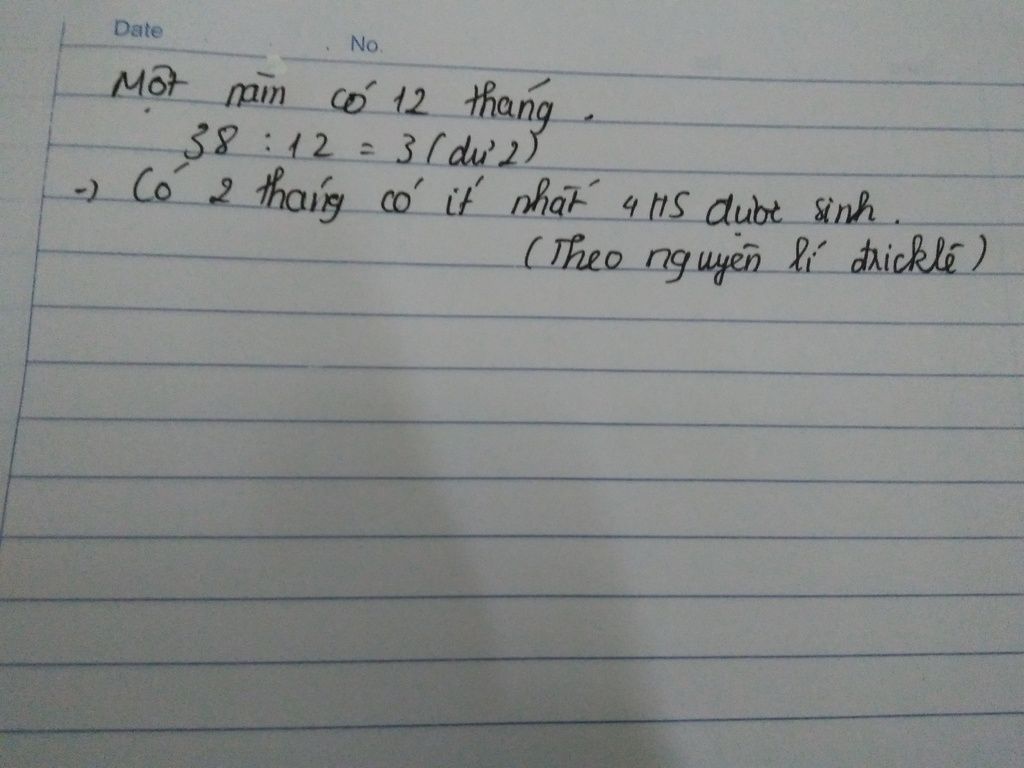 Date No.
Một năm có 12 tháng.
38 : 12 = 3 (dư 2)
-> Có 2 tháng có ít nhất 4 HS được sinh.
(Theo nguyên lí đricklê)